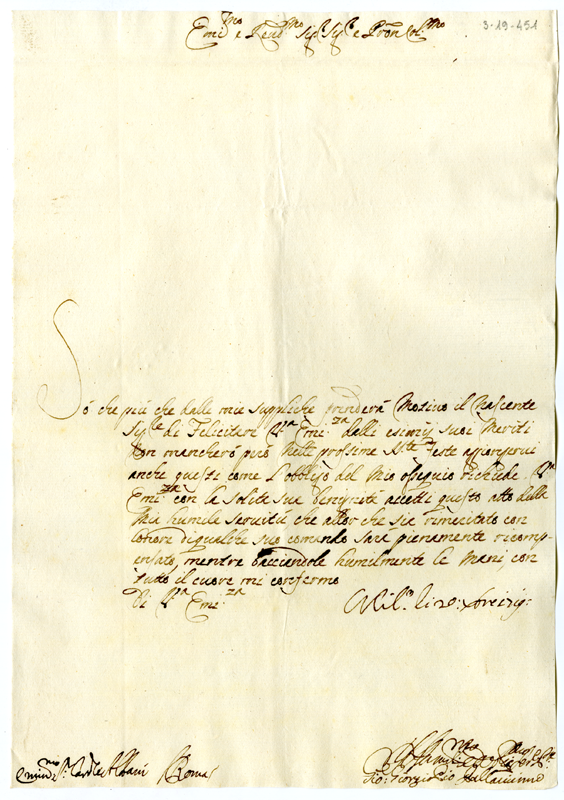 3-19-451
Em.mo e Reu.mo Sig.r Sig.r e Pron Col.mo
Só che piú che dalle mie suppliche prenderà Motiuo il Nascente
Sig.re di Felicitare V.a Emi.za dalli esimij suoi Meriti
Non mancherò però nelle prossime S.te Feste aggiongerui
anche questi come l'obbligo del Mio ossequio richiede. V.a
Emi.za con la solita sua benignità accetti questo atto della
Mia humile seruitú che allor che sia rimeritato con
l'onore di qualche suo comando sarà pienamente ricomp-
ensato, mentre bacciandole humilmente le Mani con
tutto il cuore mi confermo
Di V.a Emi.za
Mil.o li 20: Xbre
Em.mo S.r Card.le Albani Roma
Gio: Giorgio